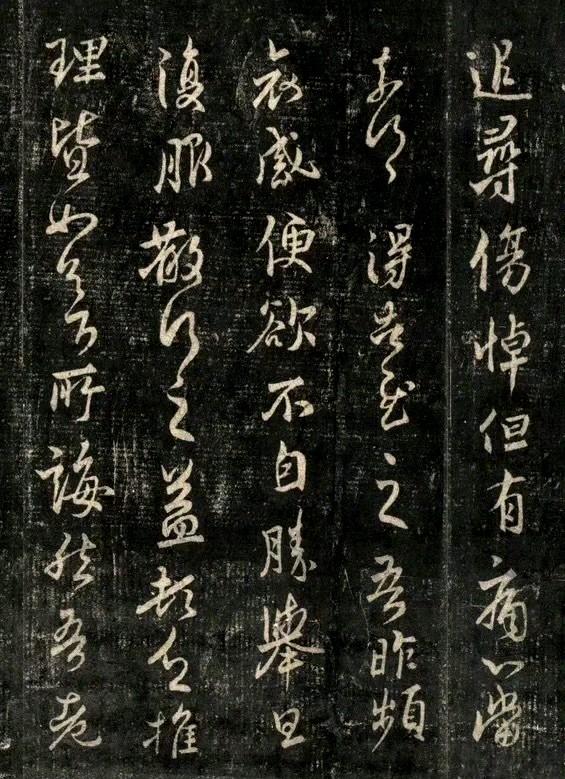 追尋傷悼但有痛心當
奈何〻得告慰之吾昨頻
哀感便欲不自勝舉旦
復服散行之益頓乏推
理皆如足下所誨然吾老